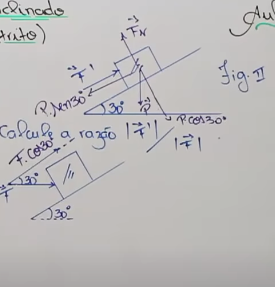 clinado
trito)
Au
F⃗N
F⃗'
Fig. II
P.sen30°
30°
P⃗
Pcos30°
Calcule a razão |F⃗'|
|F⃗|
F.cos30°
30°
F⃗
30°